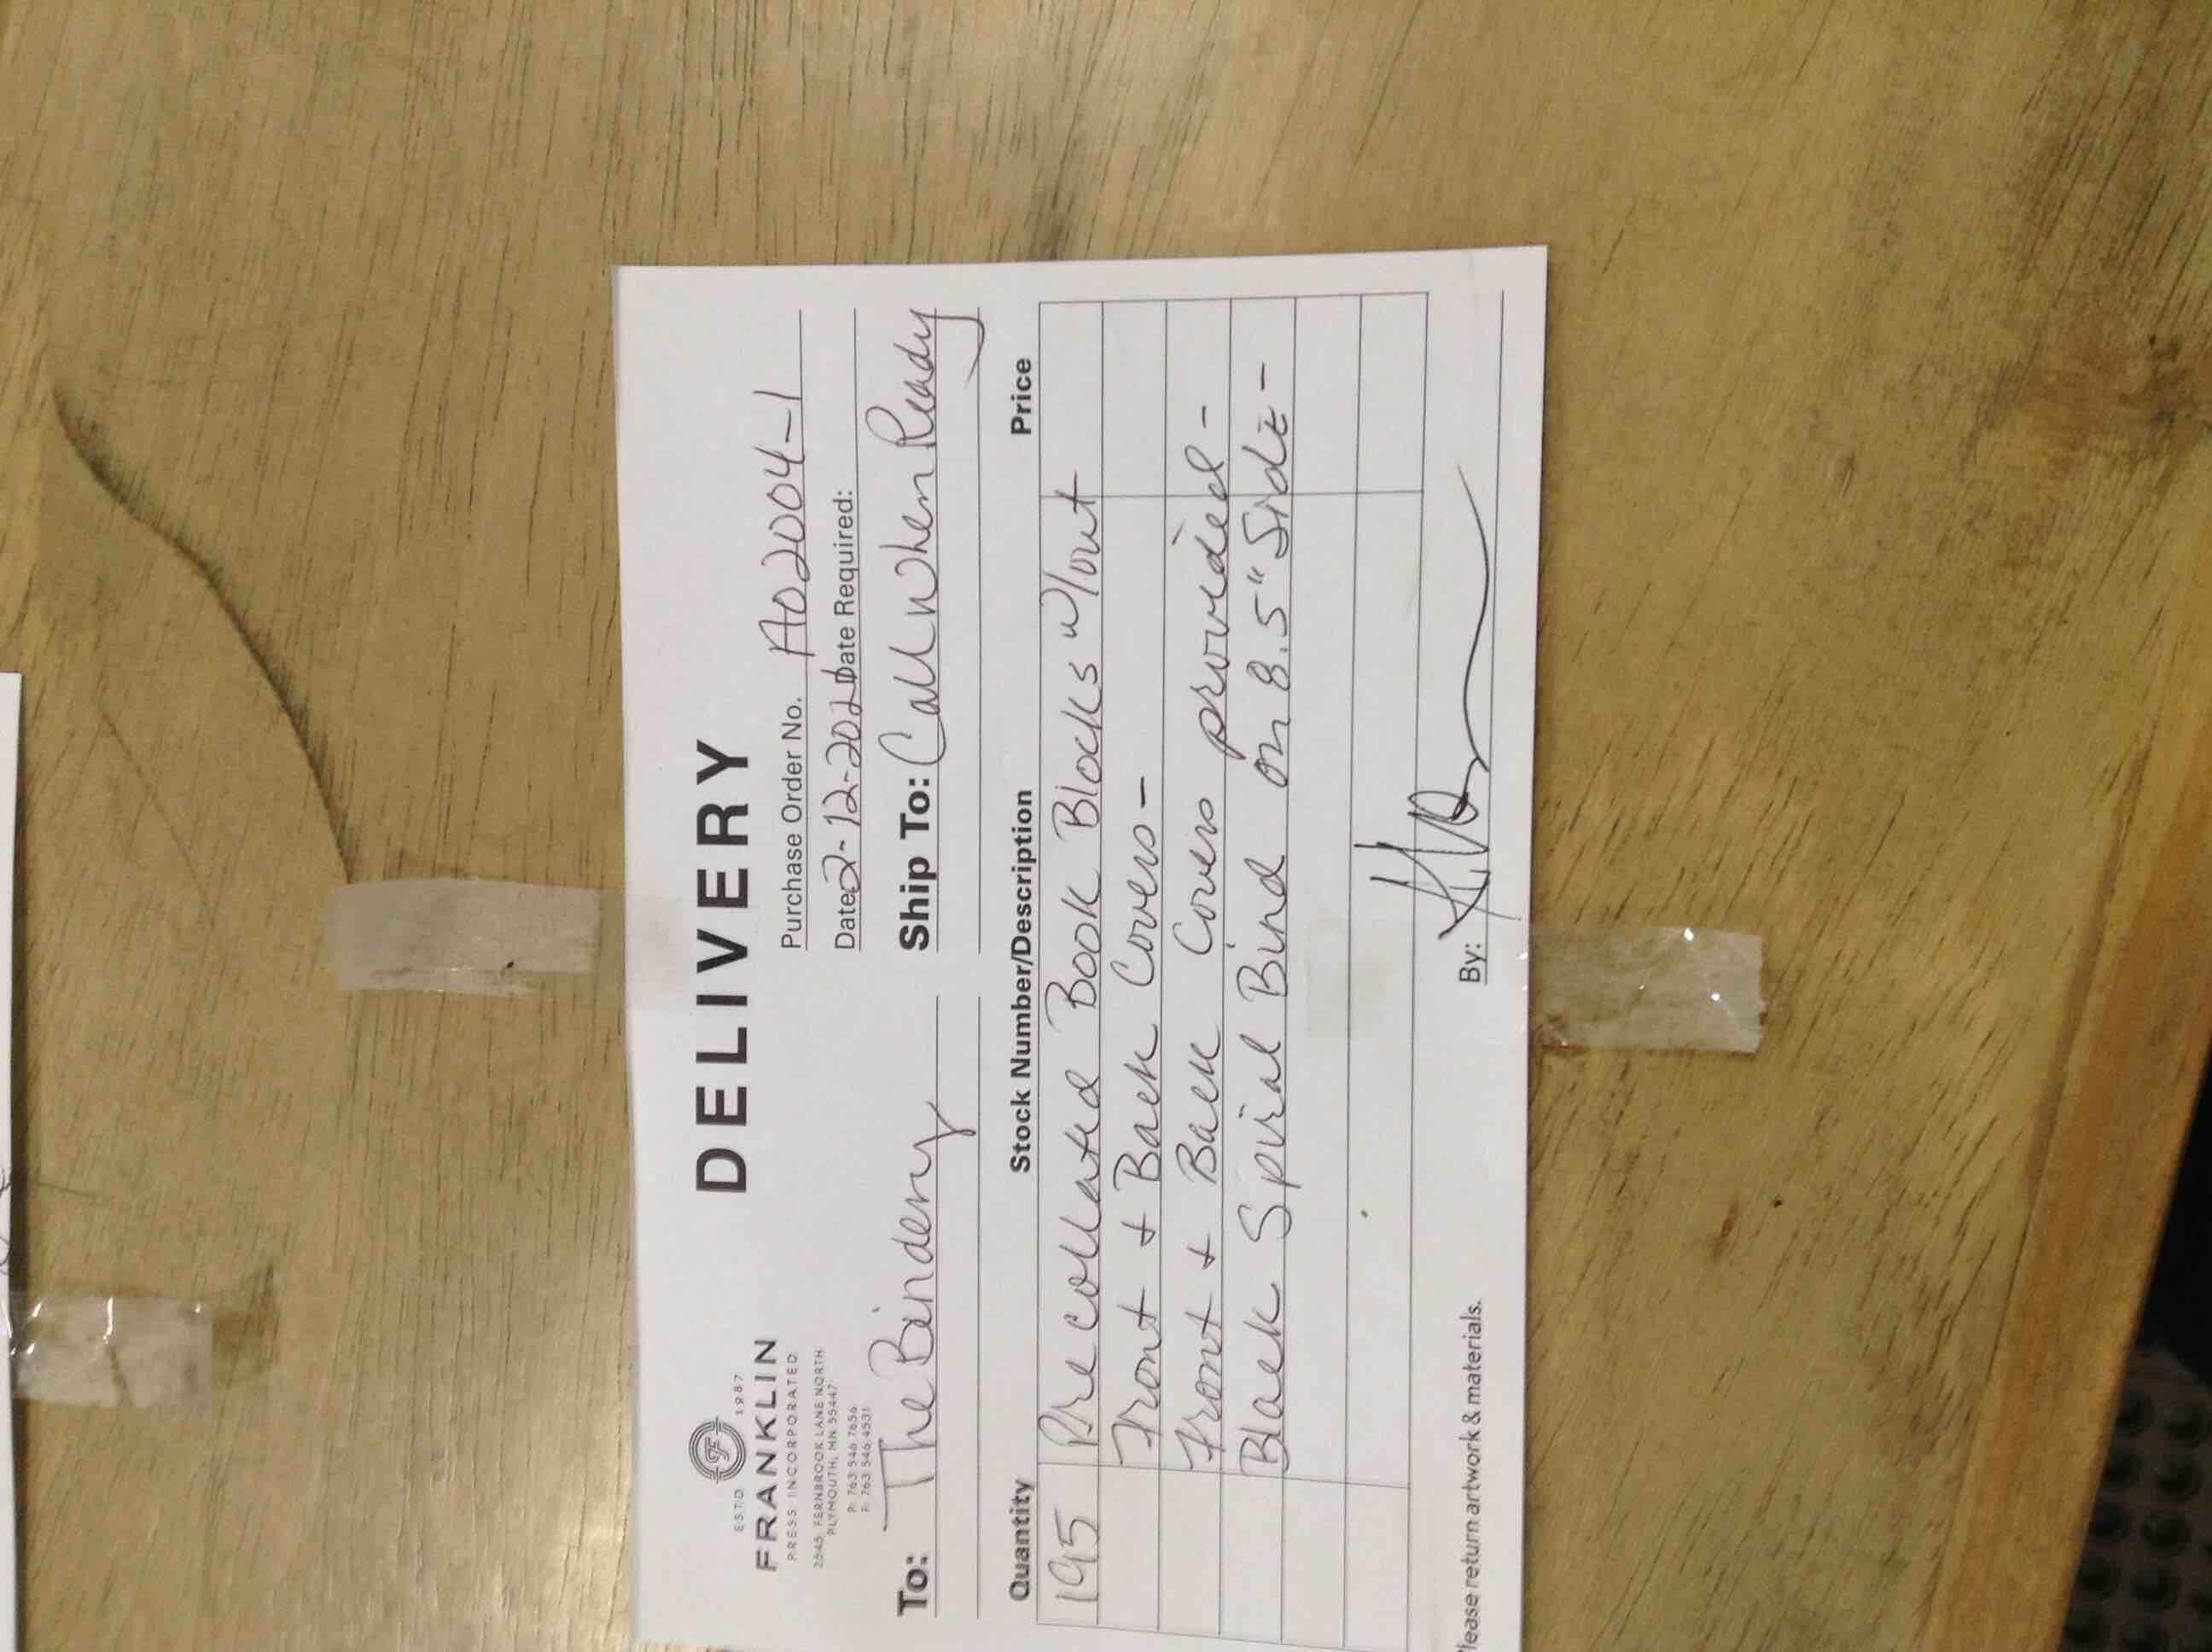 ESTD 1987
FRANKLIN
PRESS INCORPORATED
2545 FERNBROOK LANE NORTH
PLYMOUTH, MN 55447
P: 763 546 7656
F: 763 546 4531
DELIVERY
Purchase Order No. A02004-1
Date 2-12-2021 Date Required:
To: The Bindery
Ship To: Call when Ready
Quantity Stock Number/Description Price
195 Pre collated Book Blocks w/out
Front + Back Covers -
Front + Back Covers provided -
Black Spiral Bind on 8.5" Side -
By:
lease return artwork & materials.